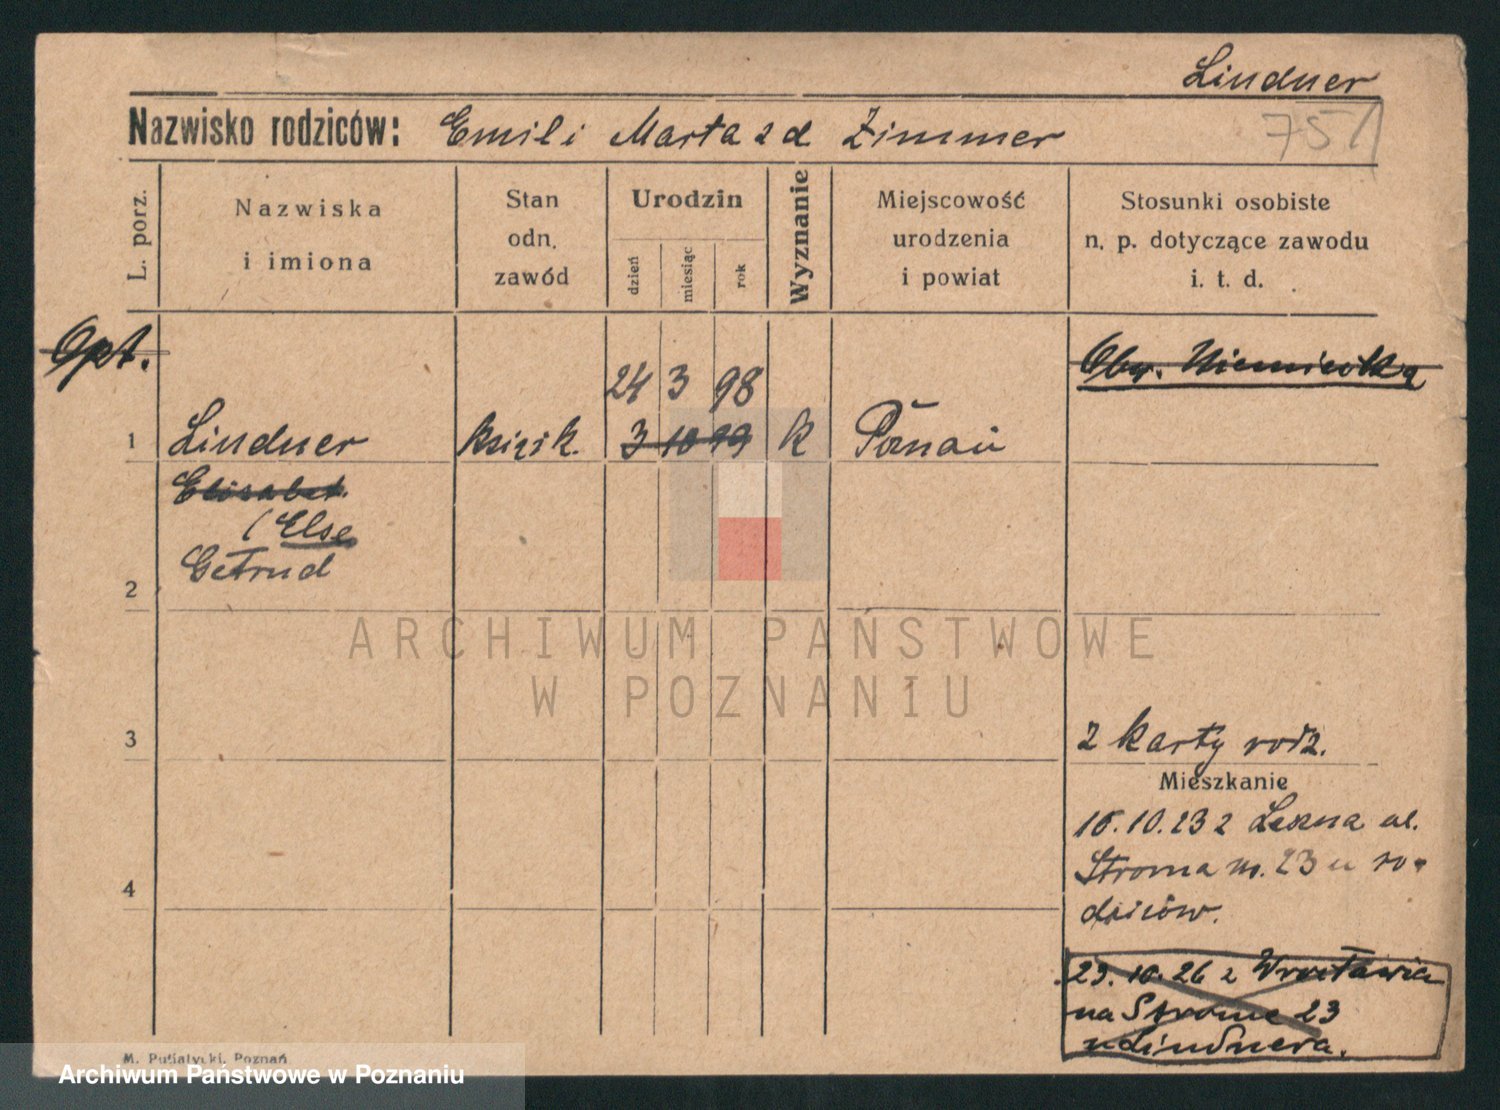 Lindner
Nazwisko rodziców: Emil i Marta z d Zimmer
751
L. porz.
Nazwiska
i imiona
Stan
odn.
zawód
Urodzin
dzień
miesiąc
rok
Wyznanie
Miejscowość
urodzenia
i powiat
Stosunki osobiste
n. p. dotyczące zawodu
i. t. d.
Opt.
Obyw. Niemiecka
24 3 98
1 Lindner książk. 3 10 99 k Poznań
Elisabet.
(Else
Getrud
2
ARCHIWUM PAŃSTWOWE
W POZNANIU
3
z karty rodz.
Mieszkanie
16.10.23 z Leszna ul.
Stroma m. 23 u ro-
4
dziców.
23. 10. 26 z Wrocławia
na Strome 23
u Lindnera.
M. Putiatycki, Poznań
Archiwum Państwowe w Poznaniu